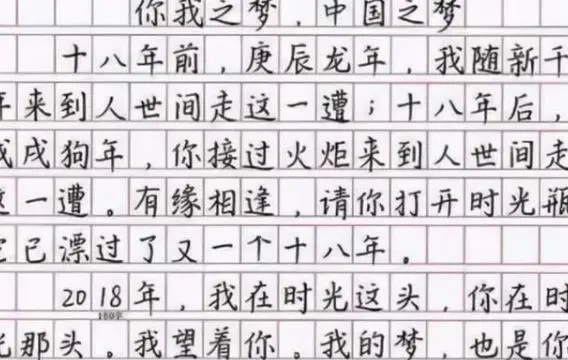 你我之梦，中国之梦
十八年前，庚辰龙年，我随新千
年来到人世间走这一遭；十八年后，
戊戌狗年，你接过火炬来到人世间走
这一遭。有缘相逢，请你打开时光瓶
它已漂过了又一个十八年。
2018年，我在时光这头，你在时
180字
光那头。我望着你。我的梦，也是你